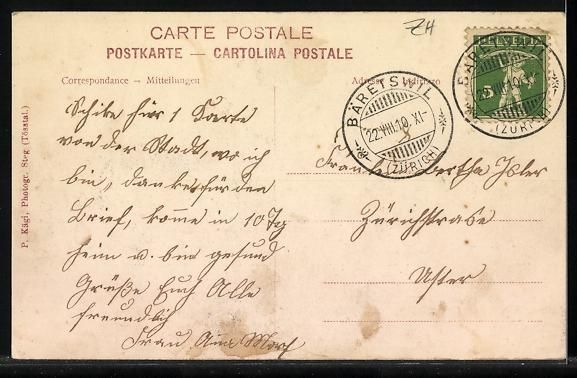 CARTE POSTALE
POSTKARTE — CARTOLINA POSTALE
ZH
HELVETIA
5
Correspondance – Mitteilungen
Adresse – Indirizzo
BÄRETSWIL
22.VIII.10.XI-
(ZÜRICH)
Schike hier 1 Karte
von der Stadt, wo ich
bin, danke für den
Brief, komme in 10 Tg
heim u. bin gesund
Grüße Euch Alle
freundlich
Frau Morf
Bertha
Zürichstraße
Uster
P. Kägi, Photogr. Steg (Tösstal.)